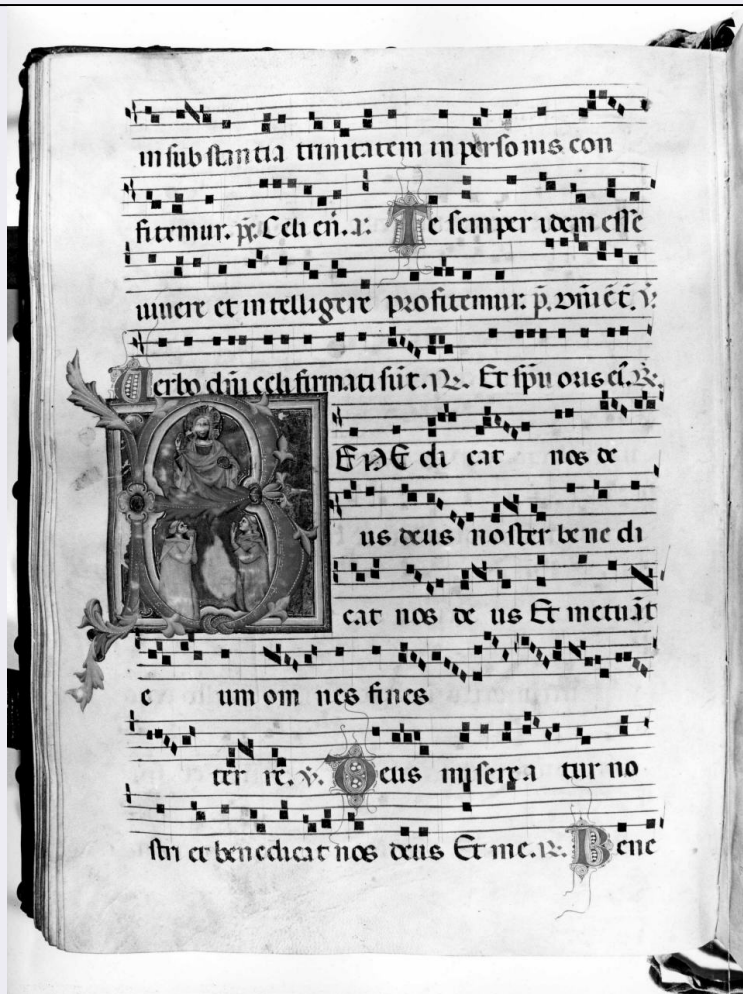 in sub stan cia trinitatem in perso nis con
fitemur. ps. Celi en̄. a. Te semper idem esse
uiuere et intelligere profitemur. p̄. v̄.
Uerbo dn̄i celi firmati sūt. R. Et spū oris ei. R.
BENE di cat nos de
us deus noster be ne di
cat nos de us Et metuāt
e um om nes fines
ter re. v. Deus misere a tur no
stri et benedicat nos deus Et me. R. Bene